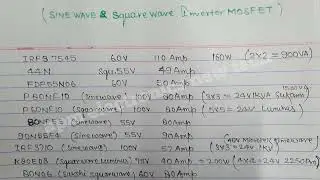 (SINE WAVE & Square Wave Inverter MOSFET)
IRFB7545 60V 110 Amp 160W (2x2 = 900VA)
44N Squ. 55V 49 Amp.
FDPD5N06 60V 50 Amp
P60NF10 (sinewave) 100V 80Amp (3x3 = 24V 1KVA Sukam)
P50NF10 (squarewave) 100V 80Amp (5x5 = 24V Luminas)
80NF55 (sinewave) 55V 80Amp
90N55F4 (sinewave) 55V 90Amp
IRF3710 (sinewave) 100V 57 Amp (3x3 = 24V 1KV)
N80E03 (squarwave Luminas) 75V 40Amp = 200W (4x4 = 24V 2250
80N06 (Sushi squarwave) 60V 80 Amp